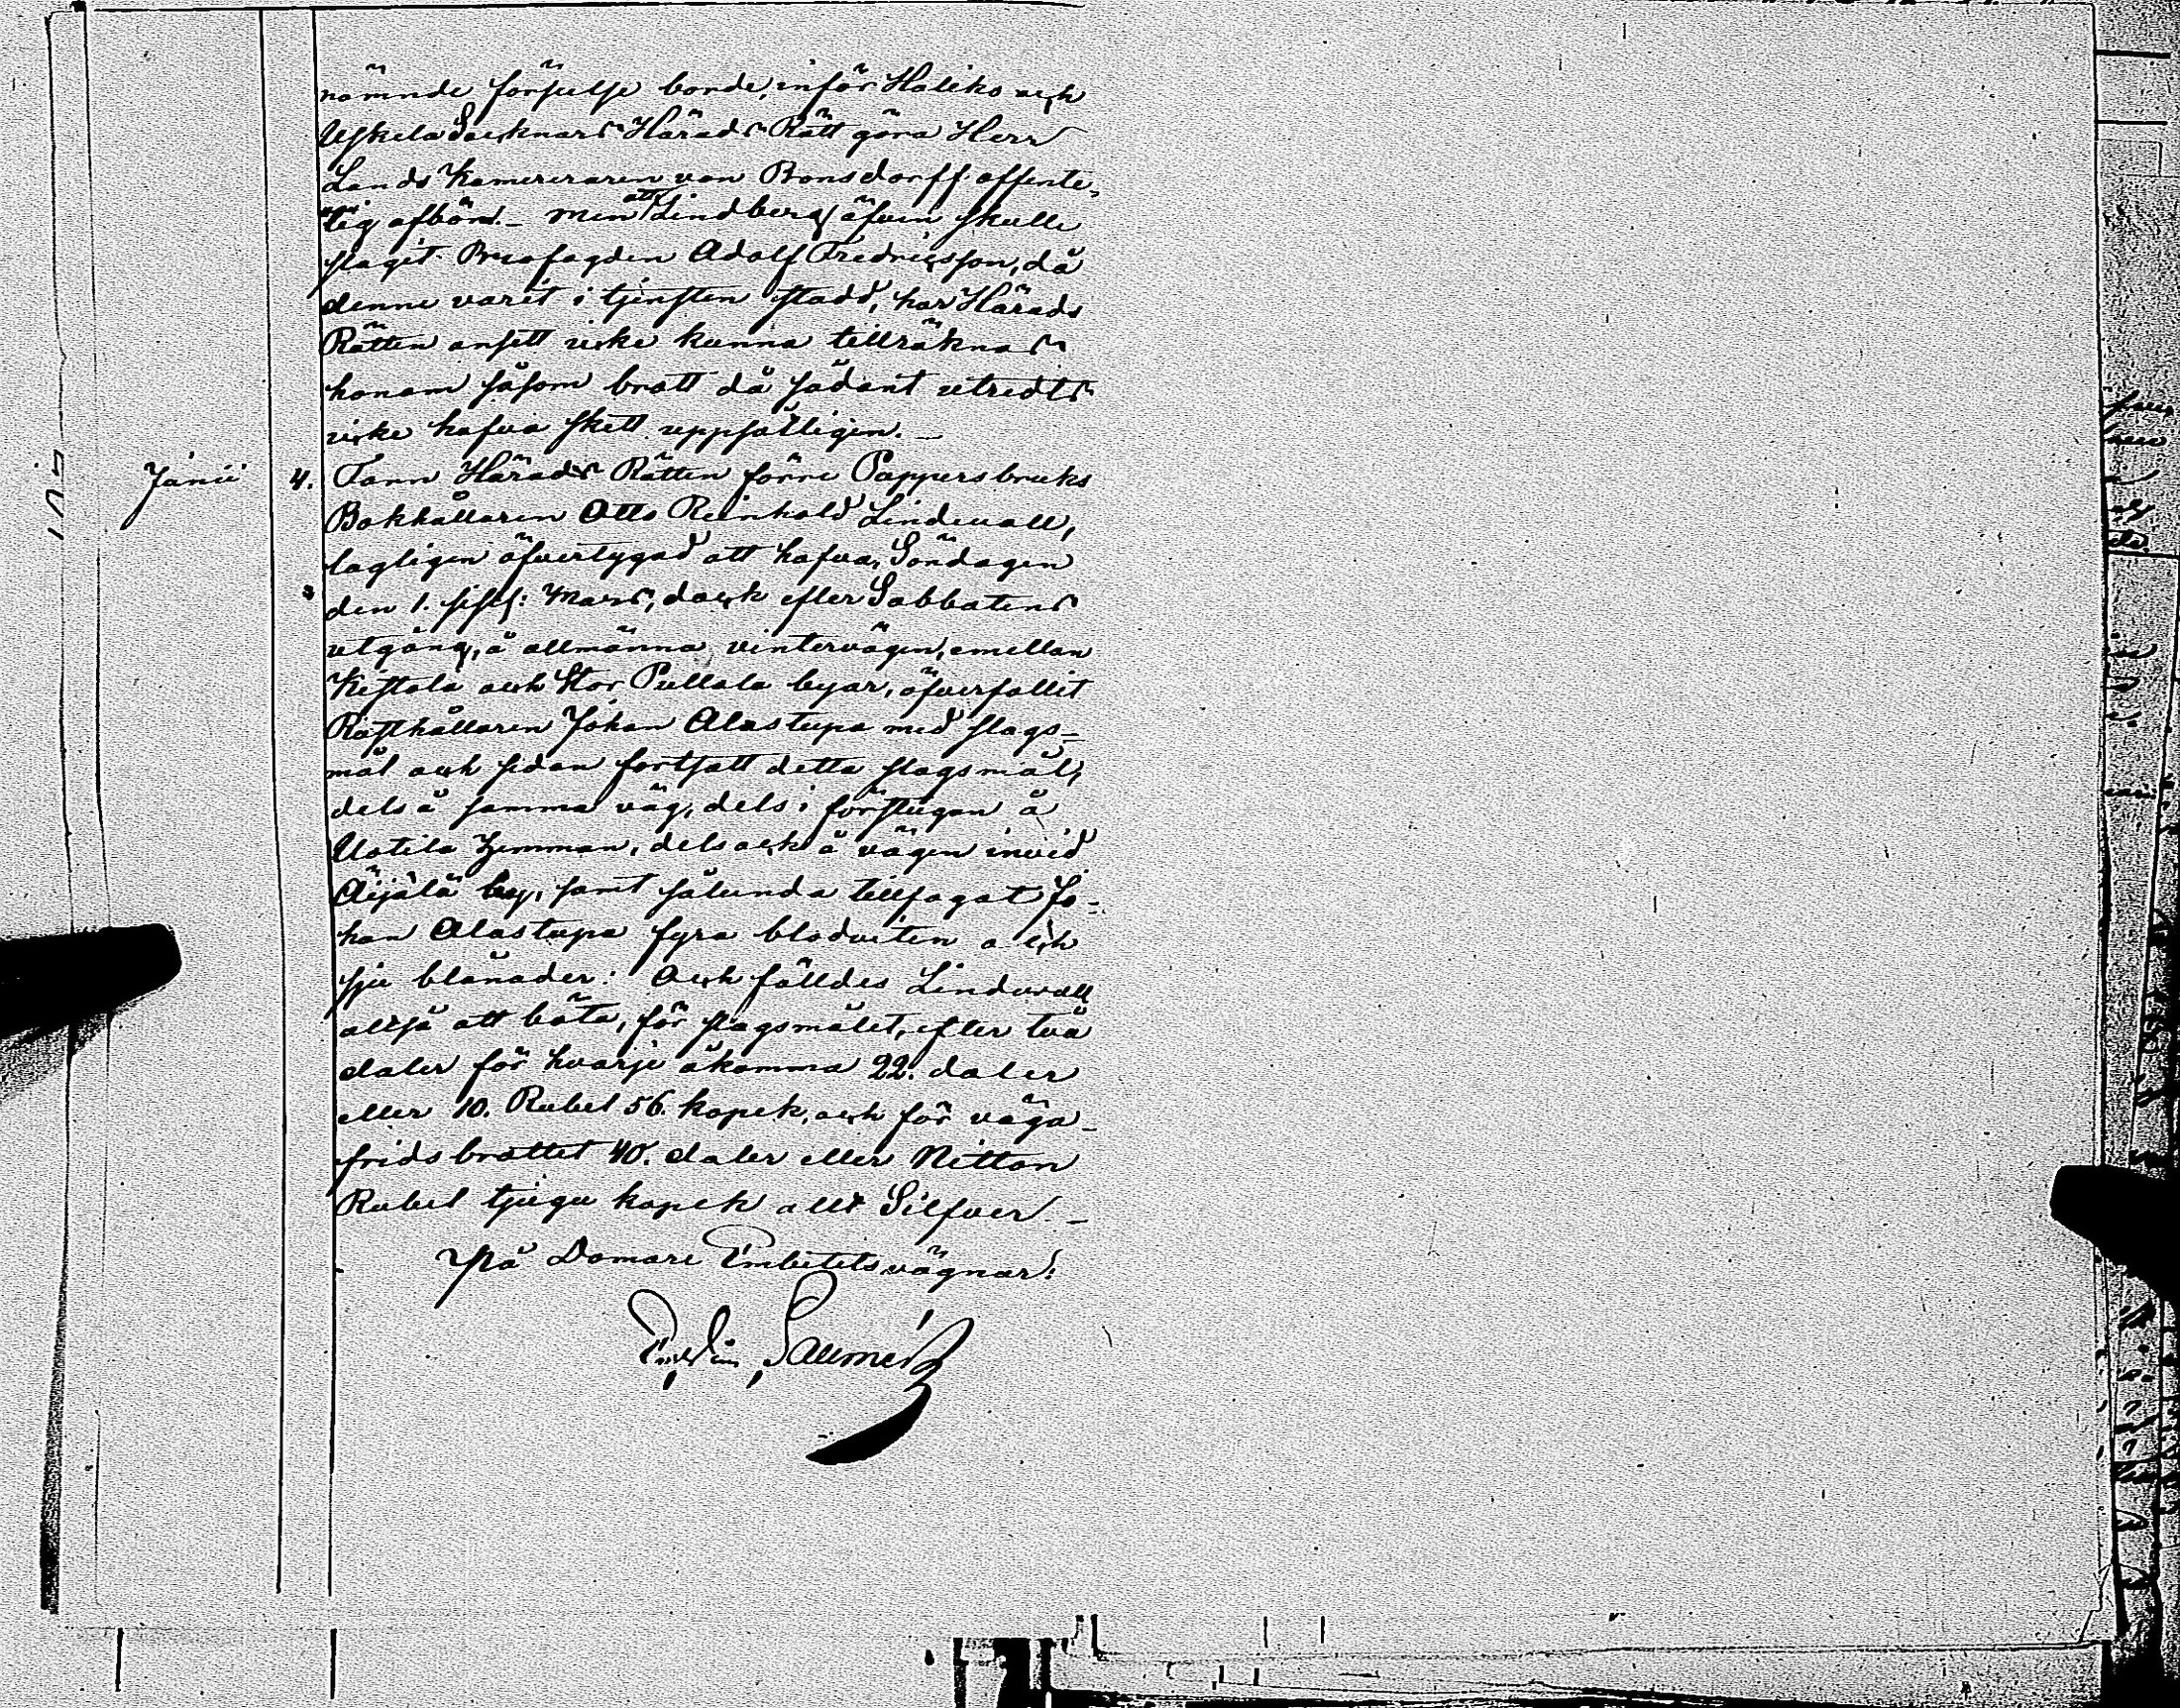 nämnde förseelse borde, inför Haliko och
Uskela Socknars Härads Rätt göra Herr
Lands Kamereraren von Bonsdorff offente-
lig afbön. - Men att Lindberg äfven skulle
slagit Brofogden Adolf Fredricsson, då
denne varit i tjensten stadd, har Härads
Rätten ansett icke kunna tillräknas
honom såsom brott då sådant utredts
icke hafva skett uppsåtligen. -
Junii 4. Fann Härads Rätten förre Pappersbruks
Bokhållaren Otto Reinhold Lindevall,
lagligen öfvertygad att hafva, Söndagen
den 1. sistl: Mars, dock efter Sabbatens
utgång, å allmänna vintervägen, emellan
Kistola och Stor Pullola byar, öfverfallit
Rusthållaren Johan Alastupa med slags-
mål och sedan fortsatt detta slagsmål,
dels å samma väg, dels i förstugan å
Uotila hemman, dels ock å vägen invid
Äijälä by, samt sålunda tillfogat Jo-
han Alastupa fyra blodviten och
sju blånader: Och fälldes Lindevall
altså att böta, för slagsmålet, efter två
daler för hvarje åkomma 22. daler
eller 10. Rubel 56. kopek, och för väga-
fridsbrottet 40. daler eller Nitton
Rubel tjugu kopek allt Silfver. -
På Domare Embetets vägnar: